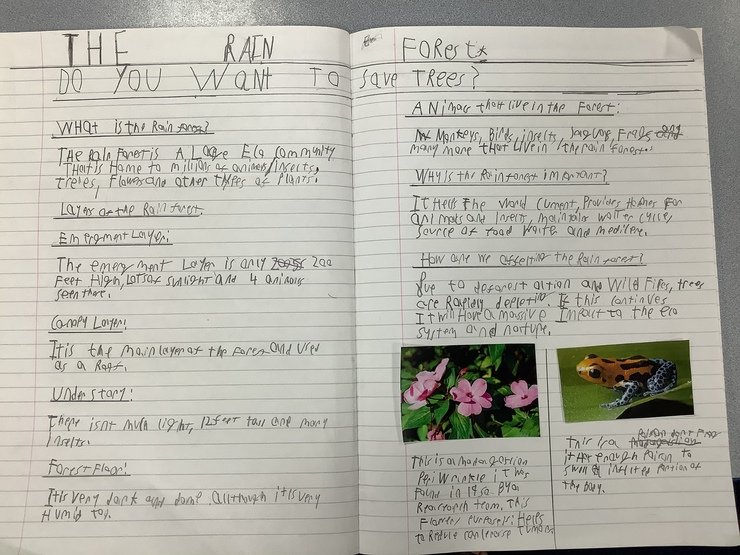 THE RAIN FORest
DO YOU WANT TO save TREES?
WHAT is the Rain forest?
THE Rain Forest is A Large Eco community
That is Home to millions of animals/Insects,
trees, Flowers and other types of Plants.
Layers of the Rain forest.
Emergment Layer:
The emergment Layer is only 200
Feet High, Lots of sunlight and 4 animals
seen there.
Canopy Layer:
It is the main layer of the forest and Used
as a Roof.
Understory:
There isnt much light, 12 feet tall and many
insects.
Forest Floor:
It is very dark and damp allthough it is very
Humid too.
ANimals that live in the Forest:
Monkeys, Birds, insects, Jaguars, Frogs and
many more that Live in the rain forest.
WHY Is the Rainforest important?
IT Helps The World Current, Provides Homes For
animals and Insects, maintains water cycle,
source of food water and medicene.
How are we affecting the Rain forest?
Due to desforestation and Wild Fires, trees
are Rapidly depleting. If this continues
It will Have a massive Impact to the eco
system and nature.
This is a madagascan
Periwrinkle it was
found in 1950 By a
Reasearch team. This
Flowers purpose is: Helps
to Reduce cancerous Tumors.
This is a Poison dart Frog
it Has enough Poison to
swell infected portion of
the body.